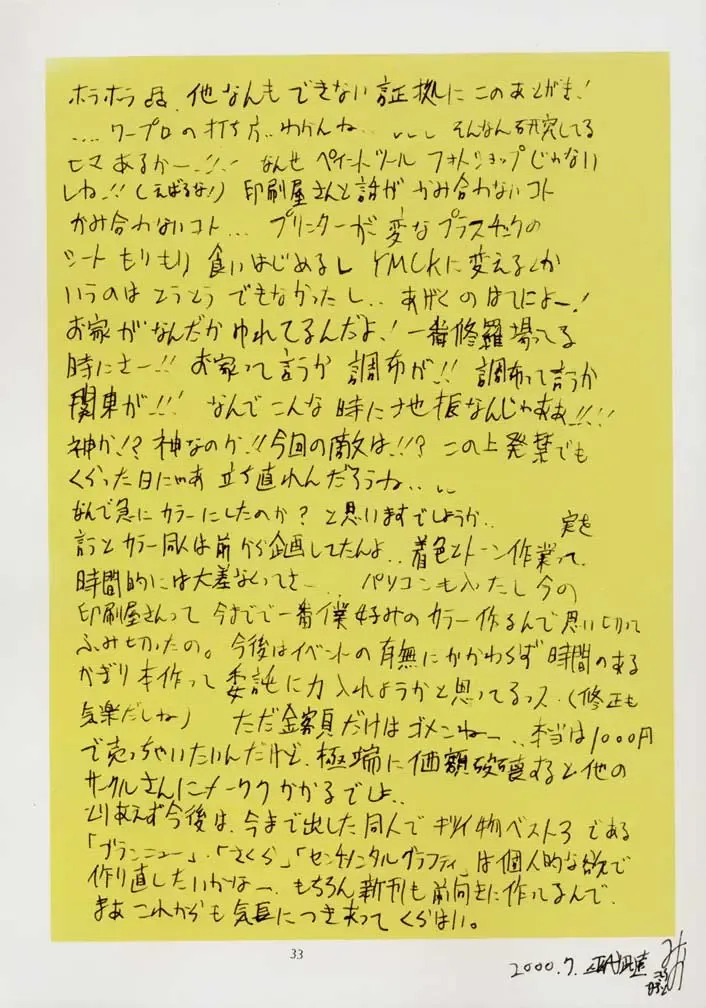 ホラホラ 、他なんもできない証拠にこのあとがき!
.... ワープロの打ち方..わかんね.. ...。そんなん研究してる
ヒマあるかー..!!..! なんせペイントツール フォトショップじゃない
しね..!!(えばるな!) 印刷屋さんと話がかみ合わないコト
かみ合わないコト... プリンターが変なプラスチックの
シートもりもり食いはじめるし YMCKに変えるとか
いうのはとうとうできなかったし.. あげくのはてによー..!
お家がなんだかゆれてるんだよ..! 一番修羅場ってる
時にさー..!! お家って言うか調布が..!! 調布って言うか
関東が..!!! なんでこんな時に地振なんじゃああ!!..!!
神か..!? 神なのか..!!今回の敵は..!!? この上発禁でも
くらった日にゃあ立ち直れんだろうね.. ...
なんで急にカラーにしたのか? と思いますでしょうか.. 実を
言うとカラー同人は前から企画してたんよ..着色とトーン作業って、
時間的には大差なくってさー... パソコンも入ったし今の
印刷屋さんって今までで一番僕好みのカラー作るんで思い切って
ふみ切ったの。今後はイベントの有無にかかわらず時間のある
かぎり本作って委託に力入れようかと思ってるっス.(修正も
気楽だしね) ただ金額だけはゴメンねー..、本当は1000円
で売っちゃいたいんだけど、極端に価額破壊すると他の
サークルさんにメーワクかかるでしょ..
とりあえず今後は、今まで出した同人でキツイ物ベスト3である
「ブランニュー」・「さくら」「センチメンタルグラフティ」は個人的な欲で
作り直したいかなー、もちろん新刊も前向きに作ってるんで、
まあこれからも気長につき合って くらはい。
33
2000.7.